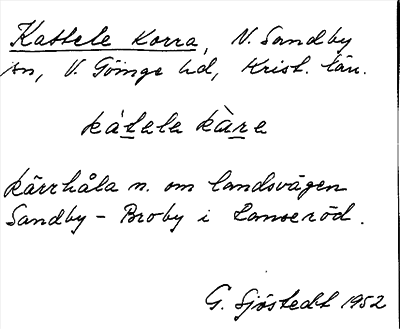 Kattele Korra, N. Sandby
sn, V. Göinge hd, Krist. län.
kátele kàre
kärrhåla n. om landsvägen
Sandby - Broby i Lanseröd.
G. Sjöstedt 1952